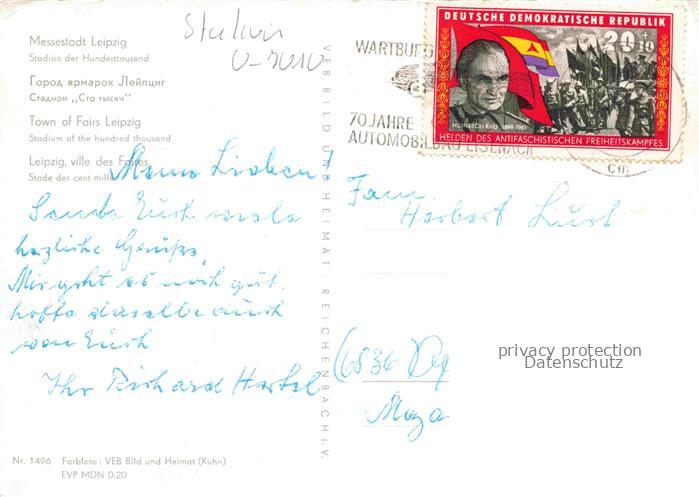 Stadion
O-7010
Messestadt Leipzig
Stadion der Hunderttausend
Город ярмарок Лейпциг
Стадион „Сто тысяч"
Town of Fairs Leipzig
Stadium of the hundred thousand
Leipzig, ville des Foires
Stade des cent mille
Meine Lieben!
Sende Euch viele
herzliche Grüße,
Mir geht es noch gut.
hoffe dasselbe auch
von Euch
Ihr Richard Hertel
Nr. 1496 Farbfoto: VEB Bild und Heimat (Kühn)
EVP MDN 0.20
VEB BILD UND HEIMAT · REICHENBACH i.V.
WARTBURG
70 JAHRE
AUTOMOBILBAU EISENACH
DEUTSCHE DEMOKRATISCHE REPUBLIK
20+10
HEINRICH RAU 1899-1961
HELDEN DES ANTIFASCHISTISCHEN FREIHEITSKAMPFES
Fam.
Herbert Lust
(6836)
privacy protection
Datenschutz